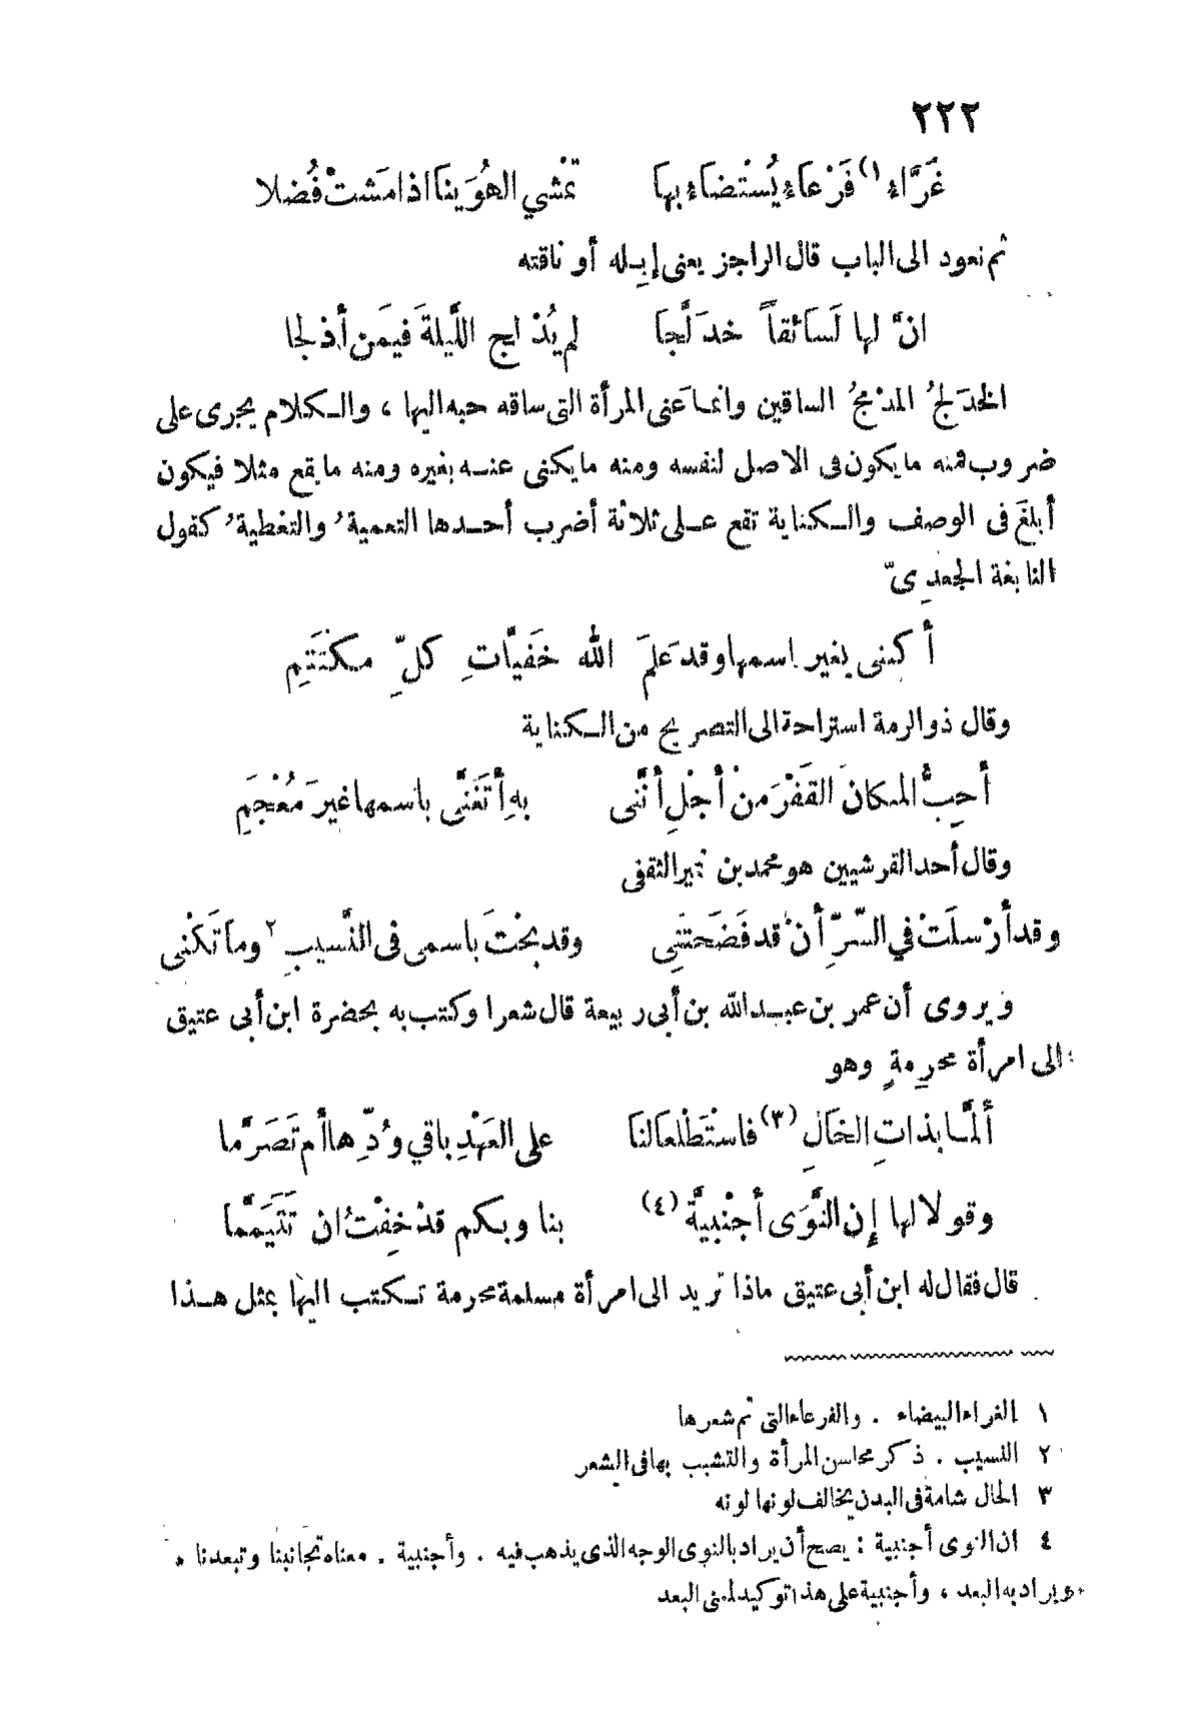 ٢٢٢
غَرَّاءُ (١) فَرْعَاءُ يُسْتَضَاءُ بها تَمْشي الهُوَينا اذا مَشتْ فُضلا
ثم نعود الى الباب قال الراجز يعنى إبله أو ناقته
انَّ لها لَسَائقاً خدَلَّجا لم يُدْلج اللَّيلةَ فيمَن أدْلجا
الخدَلجُ المدْمجُ الساقين وانماعَنى المرأة التى ساقه حبه اليها ، والكلام يجرى على
ضروب فمنه مايكون فى الاصل لنفسه ومنه مايكنى عنه بغيره ومنه مايقع مثلا فيكون
أبلغَ فى الوصف والكناية تقع على ثلاثة أضرب أحدها التعميةُ والتغطيةُ كقول
النابغة الجعديّ
أكنى بغير اسمها وقدعَلمَ الله خَفيَّاتِ كلِّ مكتَتَمِ
وقال ذوالرمة استراحة الى التصريح من الكناية
أحِبُّ المكانَ القَفْرَ منْ أجْلِ أنَّنى بهِ أتَغَنَّى باسمها غيرَ مُعْجَمِ
وقال أحد القرشيين هو محمد بن نمير الثقفى
وقد أرْسلَتْ في السَّرِّ أن قد فَضَحتَنِى وقد بحْتَ باسمى فى النَّسيبِ ٢ وما تَكْنى
ويروى أن عمر بن عبدالله بن أبى ربيعة قال شعرا وكتب به بحضرة ابن أبى عتيق
الى امرأة محرِمةٍ وهو
ألمَّا بذاتِ الخالِ (٣) فاسْتَطْلعالنا على العَهْدِ باقي وُدِّها أم تَصَرَّما
وقولا لها إن النَّوَى أجْنبيَّة (٤) بنا وبكم قدْ خِفْتُ ان تَتَيَمَّما
قال فقال له ابن أبى عتيق ماذا تريد الى امرأة مسلمة محرمة تكتب اليها بمثل هذا
١ الغراء البيضاء . والفرعاء التى تم شعرها
٢ النسيب . ذكر محاسن المرأة والتشبب بها فى الشعر
٣ الخال شامة فى البدن يخالف لونها لونه
٤ ان النوى أجنبية : يصح أن يراد بالنوى الوجه الذى يذهب فيه . وأجنبية . معناه تجانبنا وتبعدنا .
ويراد به البعد ، وأجنبية على هذا توكيد لمعنى البعد